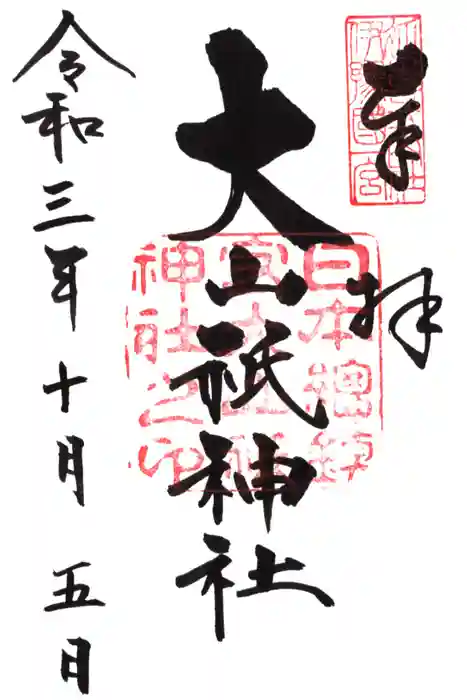 奉拝
大山祇神社
令和三年十月五日
日本總鎮
守大山祇
神社之印